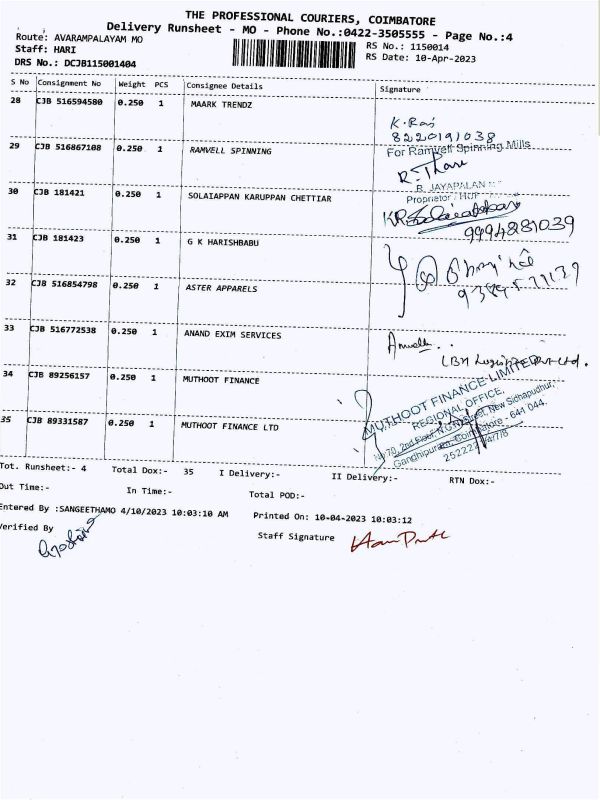 THE PROFESSIONAL COURIERS, COIMBATORE
Delivery Runsheet - MO - Phone No.:0422-3505555 - Page No.:4
Route: AVARAMPALAYAM MO
RS No.: 1150014
Staff: HARI
RS Date: 10-Apr-2023
DRS No.: DCJB115001404
S No Consignment No Weight PCS Consignee Details Signature
28 CJB 516594580 0.250 1 MAARK TRENDZ
K. Raj
8220191038
29 CJB 516867108 0.250 1 RAMVELL SPINNING
For Ramvell Spinning Mills
R. JAYAPALAN
Proprietor / HUF
30 CJB 181421 0.250 1 SOLAIAPPAN KARUPPAN CHETTIAR
9994881039
31 CJB 181423 0.250 1 G K HARISHBABU
32 CJB 516854798 0.250 1 ASTER APPARELS
33 CJB 516772538 0.250 1 ANAND EXIM SERVICES
34 CJB 89256157 0.250 1 MUTHOOT FINANCE
MUTHOOT FINANCE LIMITED
REGIONAL OFFICE,
35 CJB 89331587 0.250 1 MUTHOOT FINANCE LTD
2nd Floor, New Sidhapudhur,
Gandhipuram, Coimbatore - 641 044.
Tot. Runsheet:- 4 Total Dox:- 35 I Delivery:- II Delivery:- RTN Dox:-
Out Time:- In Time:- Total POD:-
Entered By :SANGEETHAMO 4/10/2023 10:03:10 AM Printed On: 10-04-2023 10:03:12
Verified By
Staff Signature